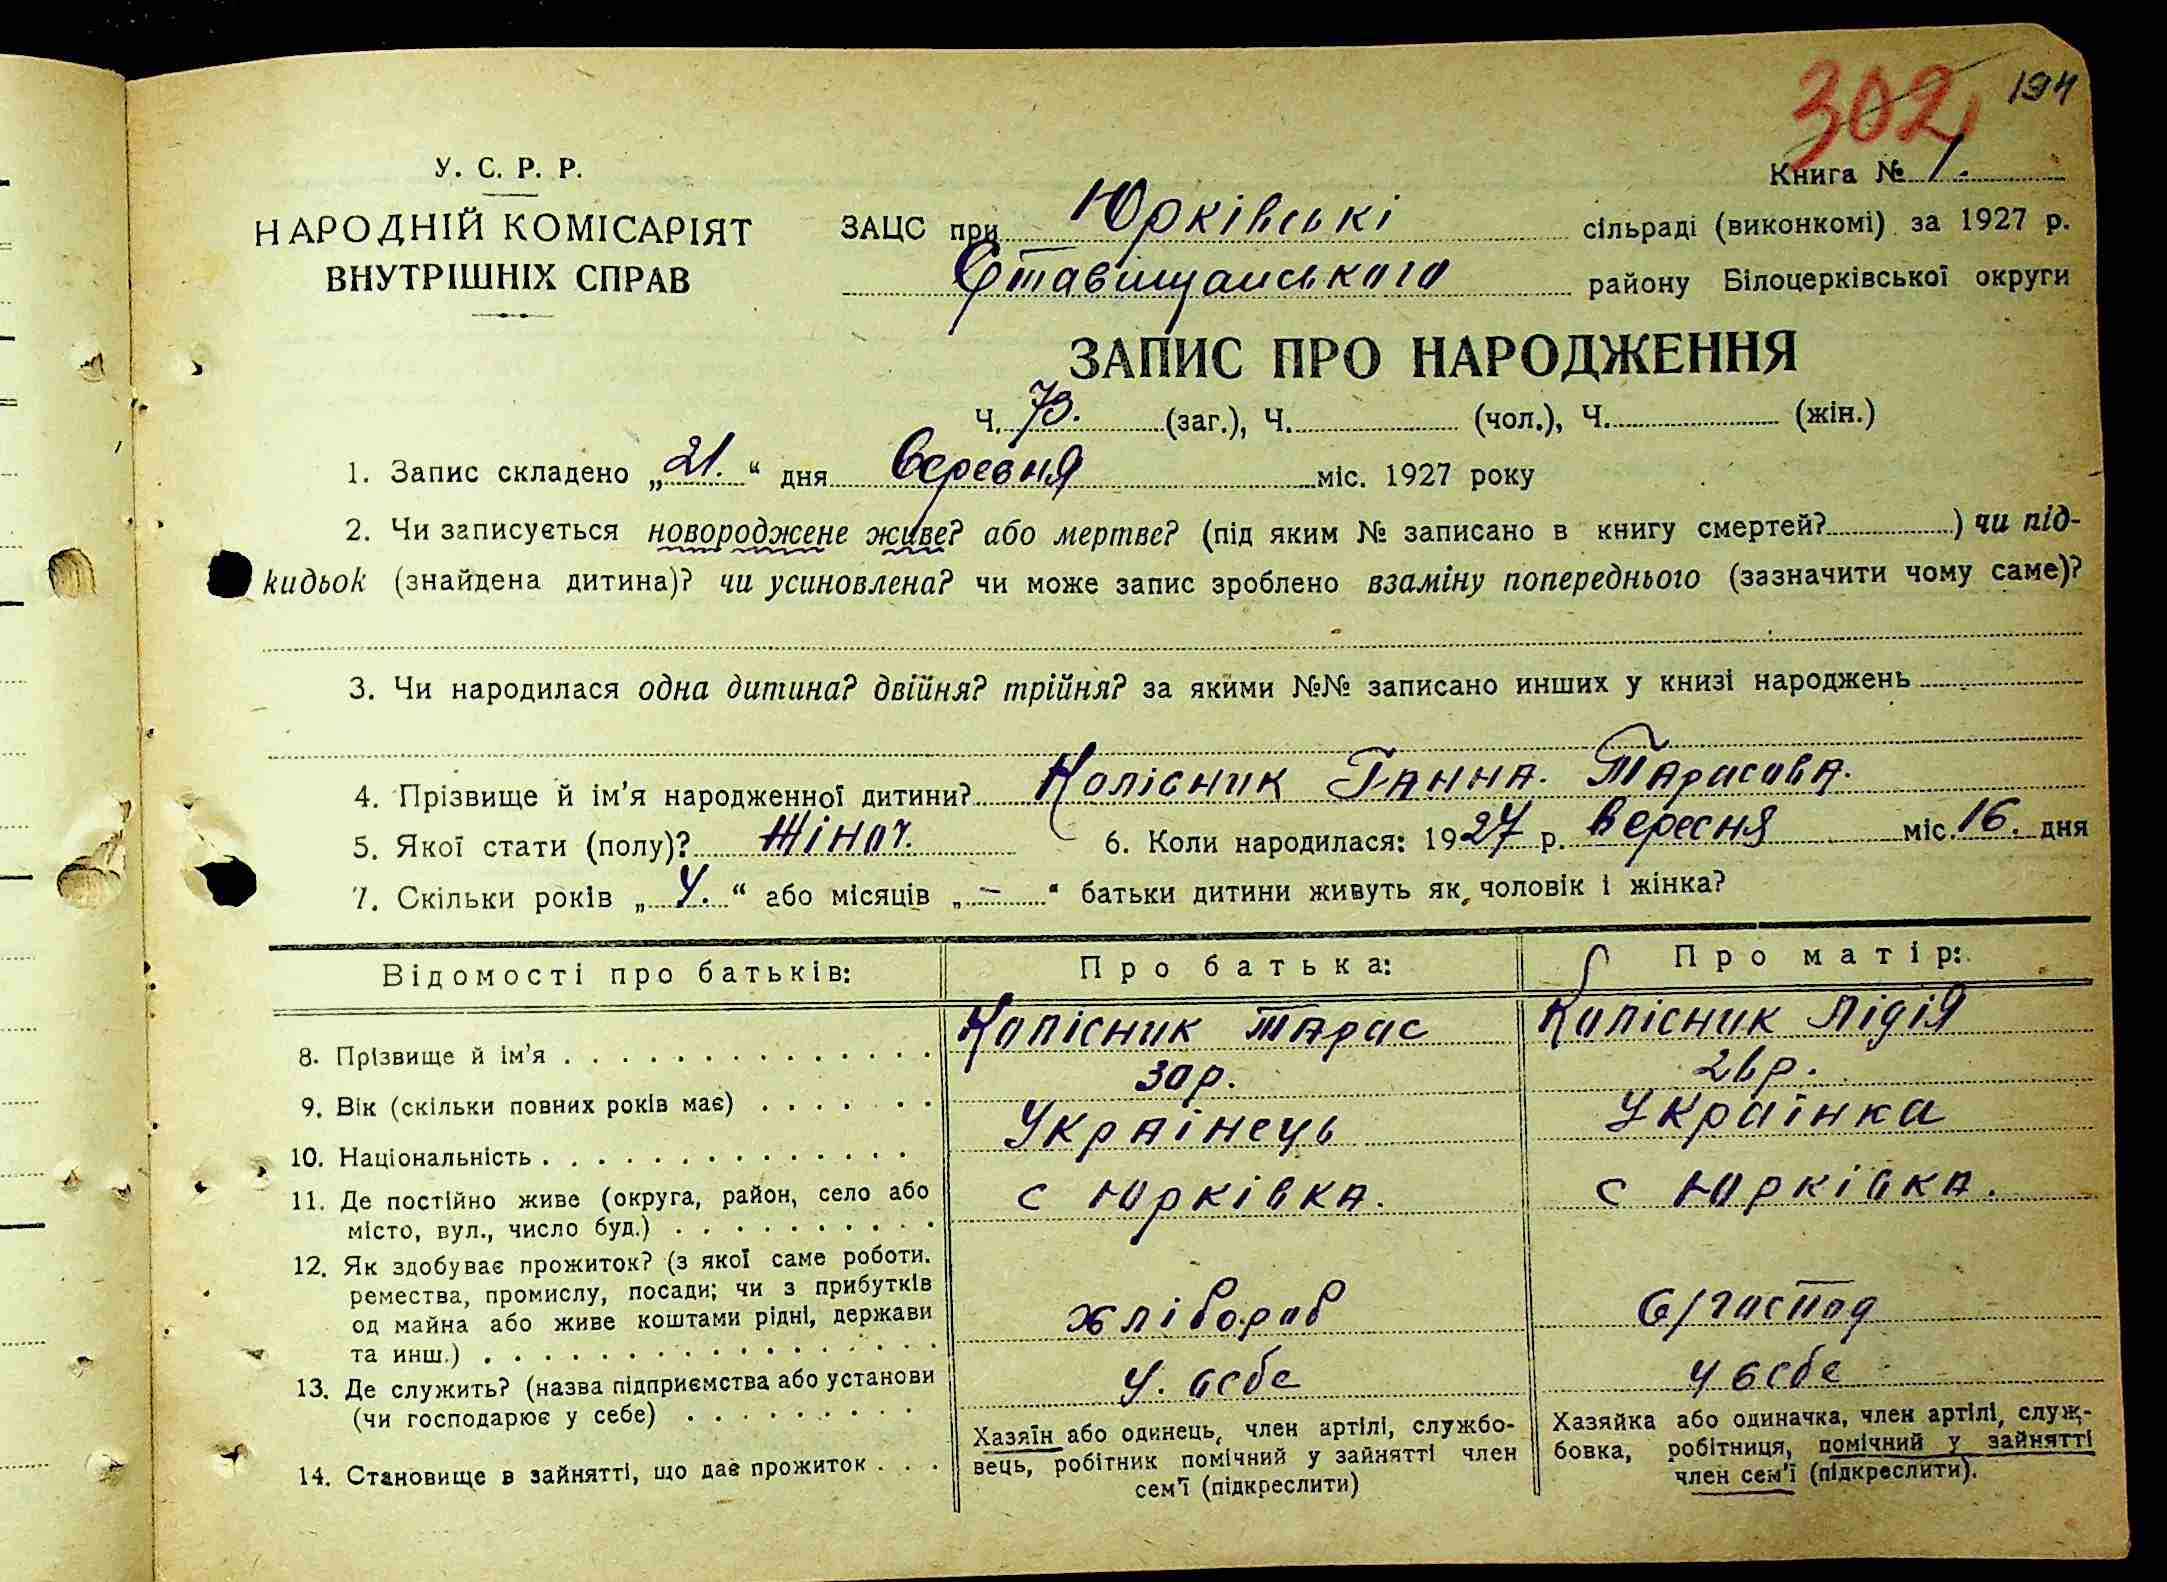 302 194
Книга № 1.
У. С. Р. Р.
НАРОДНІЙ КОМІСАРІЯТ
ВНУТРІШНІХ СПРАВ
ЗАЦС при Юрківські сільраді (виконкомі) за 1927 р.
Ставищанського району Білоцерківської округи
ЗАПИС ПРО НАРОДЖЕННЯ
Ч. 73. (заг.), Ч. (чол.), Ч. (жін.)
1. Запис складено „21.“ дня міс. 1927 року
2. Чи записується новороджене живе? або мертве? (під яким № записано в книгу смертей? ) чи під-
кидьок (знайдена дитина)? чи усиновлена? чи може запис зроблено взаміну попереднього (зазначити чому саме)?
3. Чи народилася одна дитина? двійня? трійня? за якими №№ записано инших у книзі народжень
4. Прізвище й ім'я народженної дитини? Колісник Ганна. Тарасова.
5. Якої стати (полу)? Жіноч. 6. Коли народилася: 1927 р. вересня міс. 16. дня
7. Скільки років „У.“ або місяців „–“ батьки дитини живуть як, чоловік і жінка?
Відомості про батьків: Про батька: Про матір:
8. Прізвище й ім'я Колісник Тарас Колісник Лідія
9. Вік (скільки повних років має) 30 р. 26 р.
10. Національність Українець Українка
11. Де постійно живе (округа, район, село або
місто, вул., число буд.) с Юрківка. с Юрківка.
12. Як здобуває прожиток? (з якої саме роботи.
ремества, промислу, посади; чи з прибутків
од майна або живе коштами рідні, держави
та инш.) хлібороб С/господ
13. Де служить? (назва підприємства або установи
(чи господарює у себе) У. себе У себе
14. Становище в зайнятті, що дає прожиток
Хазяїн або одинець, член артілі, службо-
вець, робітник помічний у зайнятті член
сем'ї (підкреслити)
Хазяйка або одиначка, член артілі, служ-
бовка, робітниця, помічний у зайнятті
член сем'ї (підкреслити).